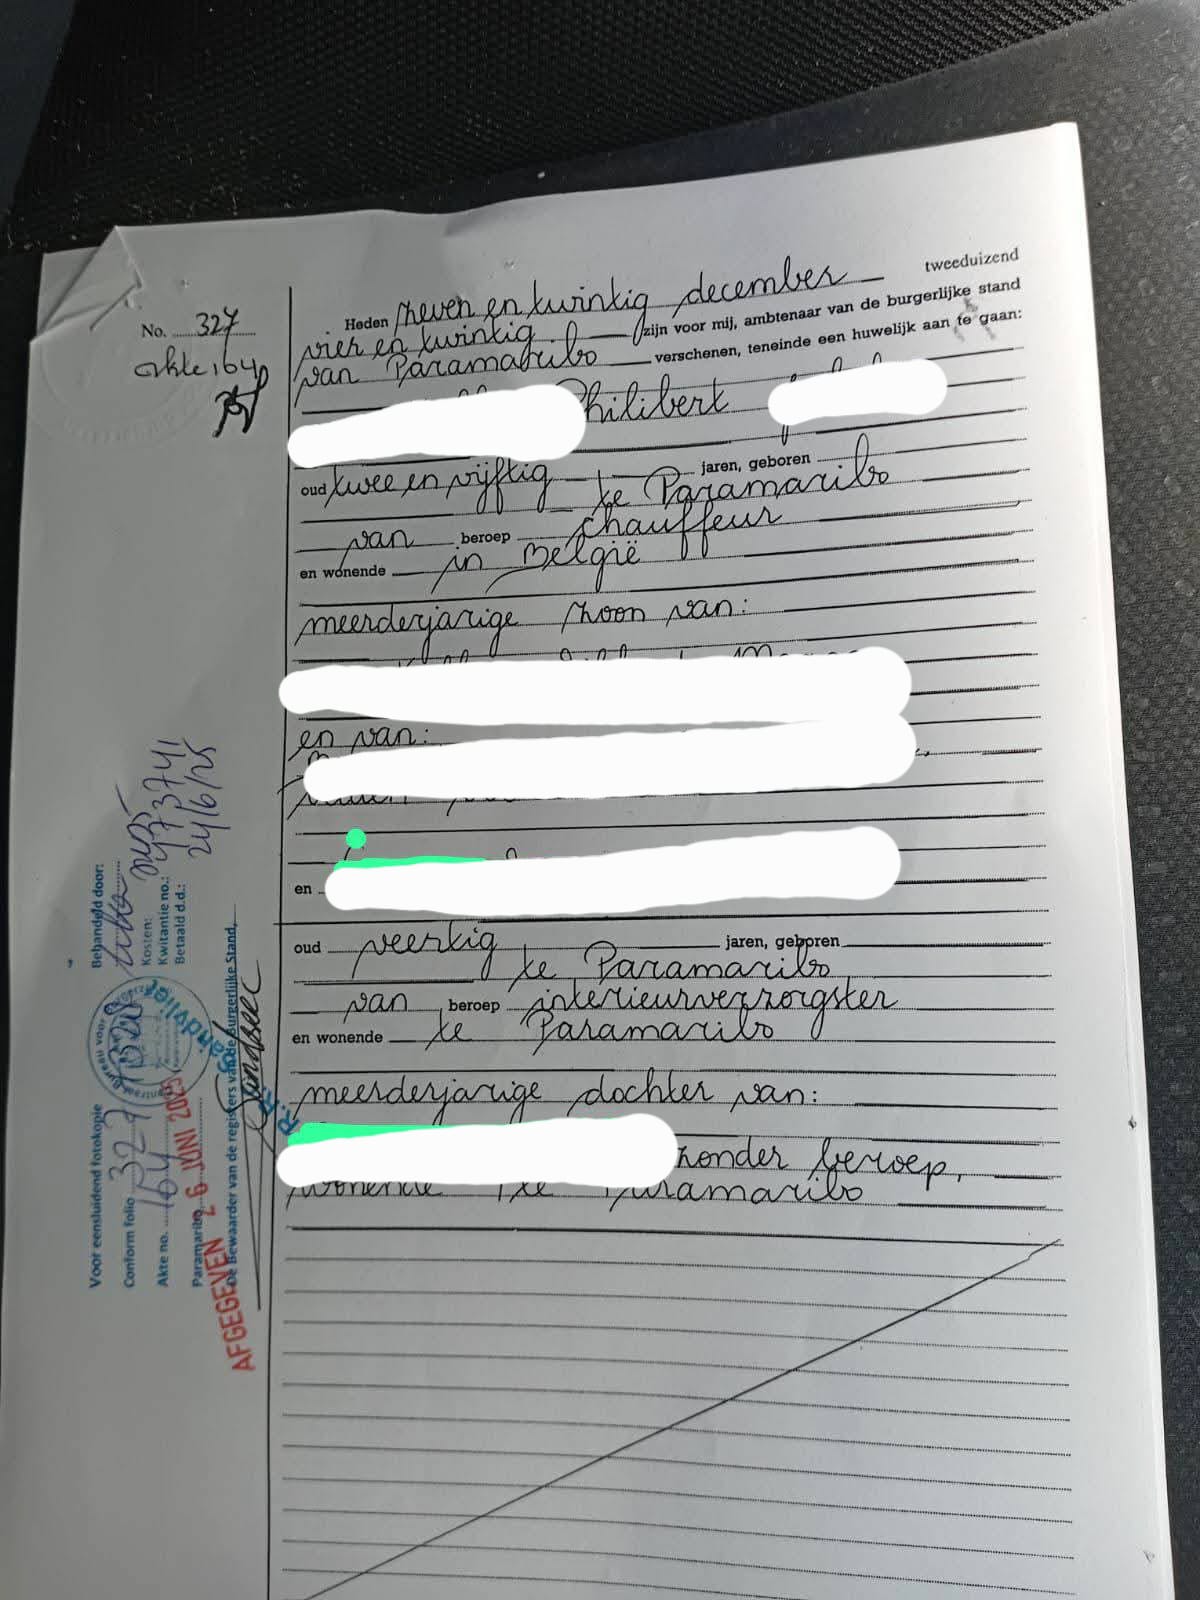 No. 327
Akte 164
Heden zeven en twintig december tweeduizend
vier en twintig zijn voor mij, ambtenaar van de burgerlijke stand
van Paramaribo verschenen, teneinde een huwelijk aan te gaan:
Philibert
oud twee en vijftig jaren, geboren
te Paramaribo
van beroep chauffeur
en wonende in België
meerderjarige zoon van:
en van:
en
oud veertig jaren, geboren
te Paramaribo
van beroep interieurverzorgster
en wonende te Paramaribo
meerderjarige dochter van:
zonder beroep,
wonende te Paramaribo
Voor eensluidend fotokopie
Conform folio 327
Akte no. 164
Paramaribo
AFGEGEVEN 26 JUNI 2025
De Bewaarder van de registers van de Burgerlijke Stand,
Behandeld door:
Kosten:
Kwitantie no.: 473741
Betaald d.d.: 24/6/25